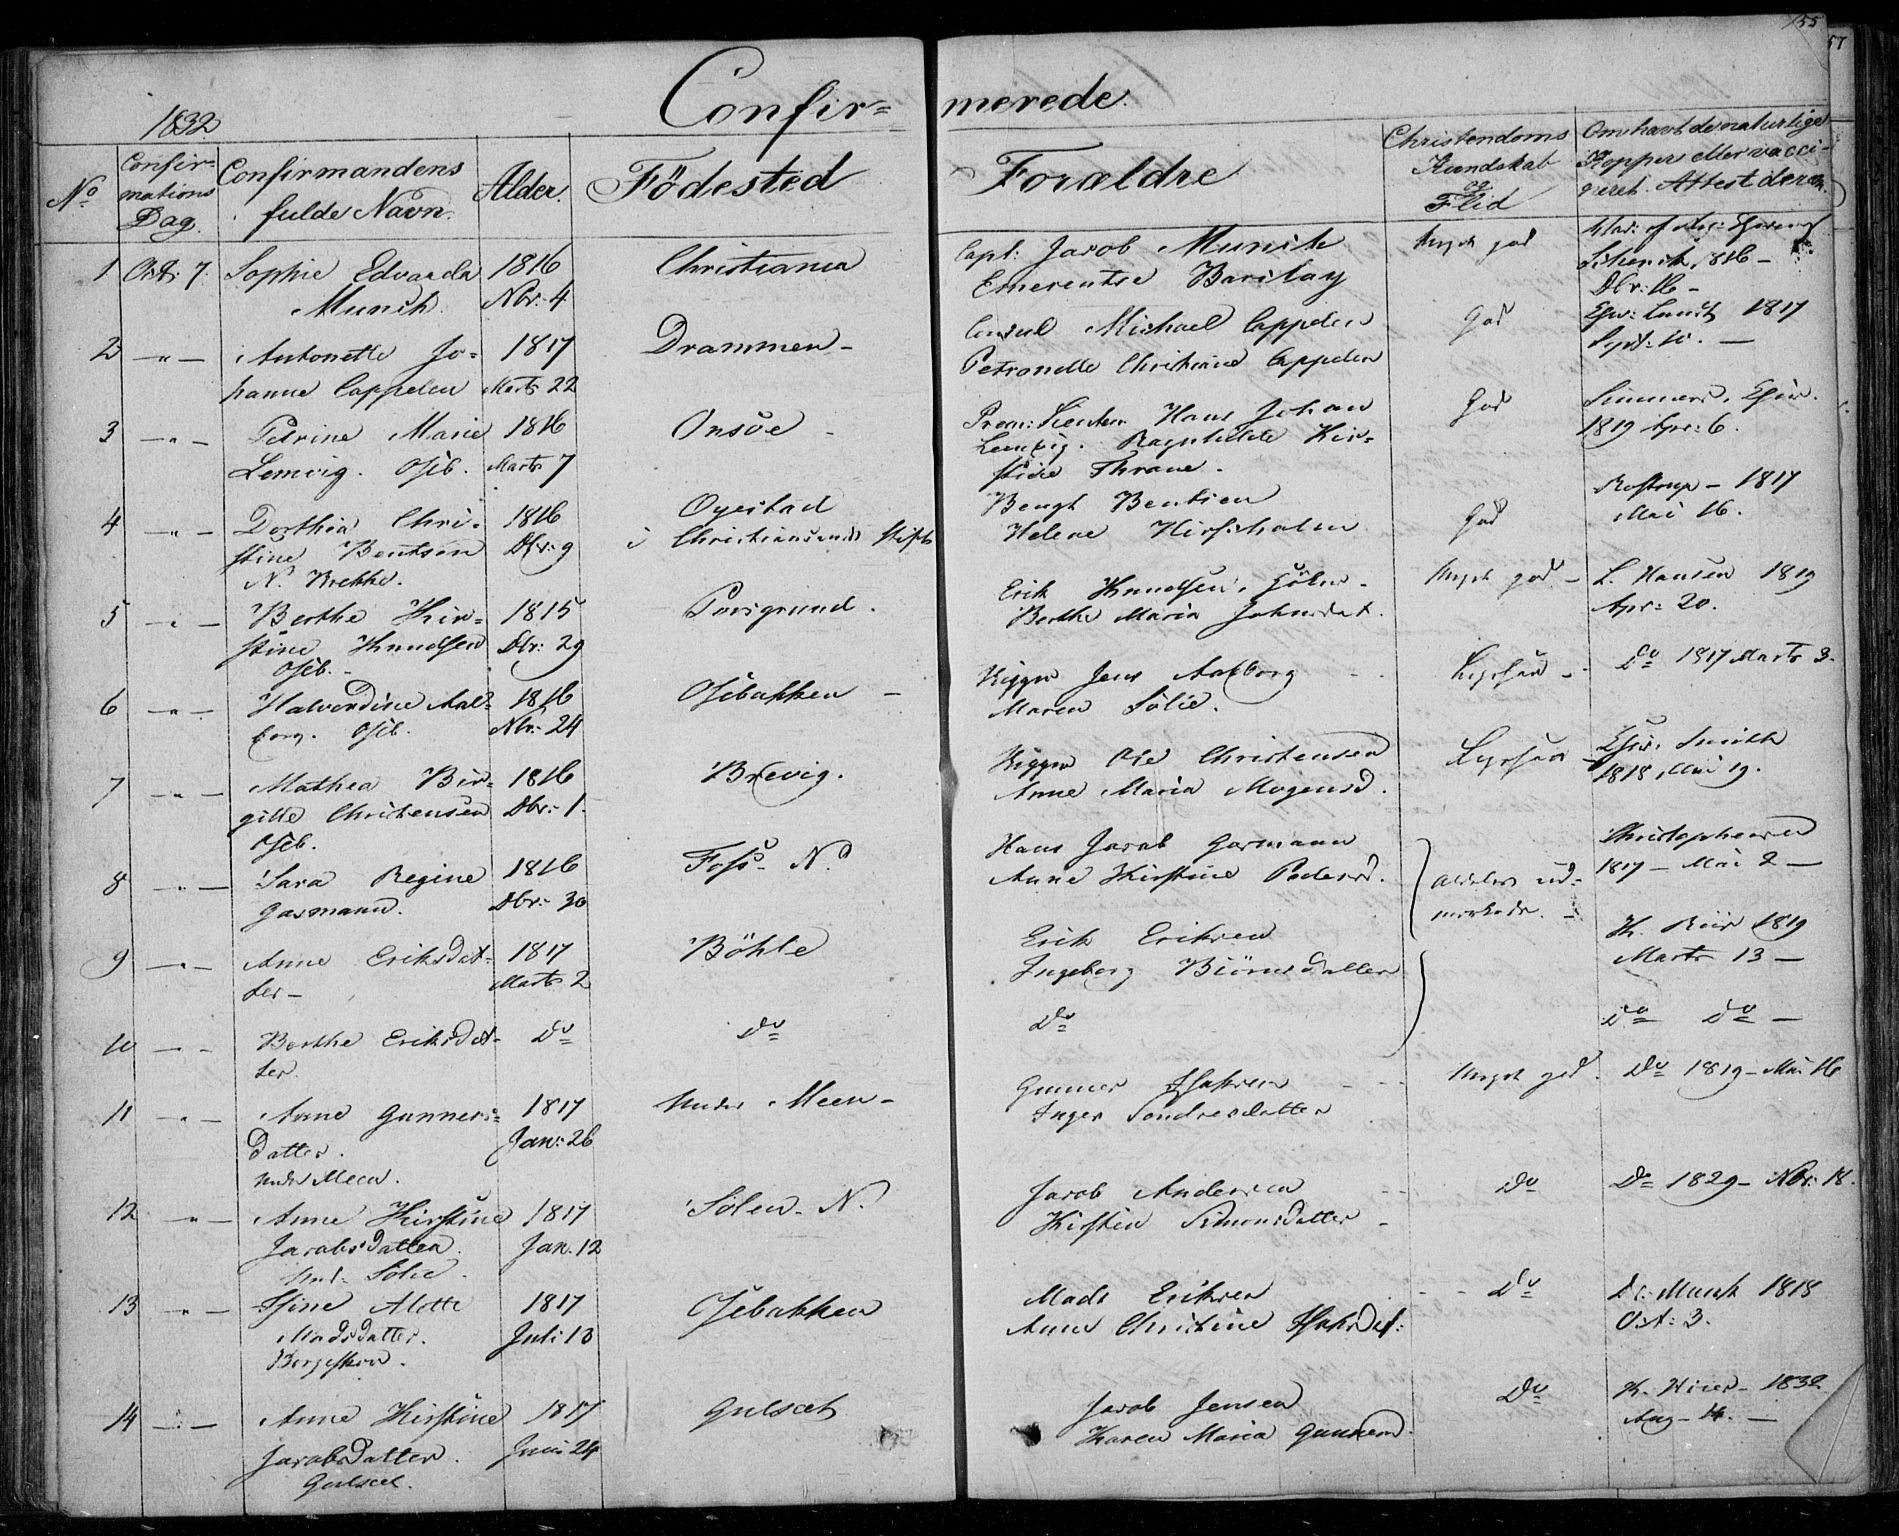 155
57
Confir=
merede.
1832
No
Confir=
mations
Dag.
Confirmandens
fulde Navn.
Alder.
Födested
Forældre
Christendoms
Kundskab
og
Flid
Om havt de naturlige
Kopper eller vacci-
neret. Attest derom.
1 Oct: 7. Sophie Edvarda 1816 Christiania
Munch. Nbr: 4
Capt: Jacob Munch Meget god
Emerentse Barclay
1816 -
Dbr: 16 -
2 — " — Antonette Jo= 1817 Drammen -
hanne Cappelen Marts 22
Consul Michael Cappelen God 1817
Petronelle Christiane Cappelen Sept: 10. —
3 — " — Petrine Marie 1816 Onsöe -
Lemvig. Oseb. Marts 7
Prem: Lieuten Hans Johan God
Lemvig. Ragnhilde Kir= 1819 Apr: 6.
stine Thrane.
4 — " — Dorthea Chri- 1816 Oyestad
stine Bentsen Dbr: 9 i Christiansands Stift
N. Brekke.
Bengt Bentsen God Rostrup - 1817
Helene Mai 16.
5 — " — Berthe Kir= 1815 Porsgrund.
stine Knudsen Dbr: 29
Oseb. -
Erik Knudsen, Meget god - L. Hansen 1819
Berthe Maria Johnsdat. Apr: 20.
6 — " — Halvordine Aal= 1816 Osebakken -
borg. Oseb. Nbr: 24
Rigger Jens Aalborg Do 1817 Marts 3.
Maren Sölie.
7 — " — Mathea Bir= 1816 Brevig.
gitte Christensen Dbr: 1.
Oseb.
Rigger Ole Christensen Smith
Anne Maria Mogensd. 1818 Mai 19.
8 — " — Sara Regine 1816 Foss - N.
Gasmann. Dbr: 30
Hans Jacob Gasmann Christophersen
Anne Kirstine Pedersd. Aldeles ud= 1817 - Mai 2 —
mærkede. -
9 — " — Anne Eriksdat= 1817 Böhle
ter - Marts 2
Erik Eriksen 1819
Ingeborg Biörnsdatter Marts 13 —
10 — " — Berthe Eriksdat= Do Do
ter.
Do Do Do —
11 — " — Anne Gunners= 1817 Under Meen -
datter. Jan: 26
under Meen.
Gunner Meget god. Do 1819 - Mai 16
Inger Sondresdatter
12 — " — Anne Kirstine 1817 Sölen. N.
Jacobsdatter. Jan. 12
und: Sölie.
Jacob Andersen Do Do 1829 - Nbr: 18.
Kirstin Simonsdatter -
13 — " — Stine Alotte 1817 Osebakken
Madsdatter. Juli 13
Mads Eriksen Do Dr. Munk 1818
Anne Christine Oct: 3.
14 — " — Anne Kirstine 1817 Gulset
Jacobsdatter. Juni 24
Gulset.
Jacob Jensen Do 1832
Karen Maria Gunnersd. Aug - 14. —